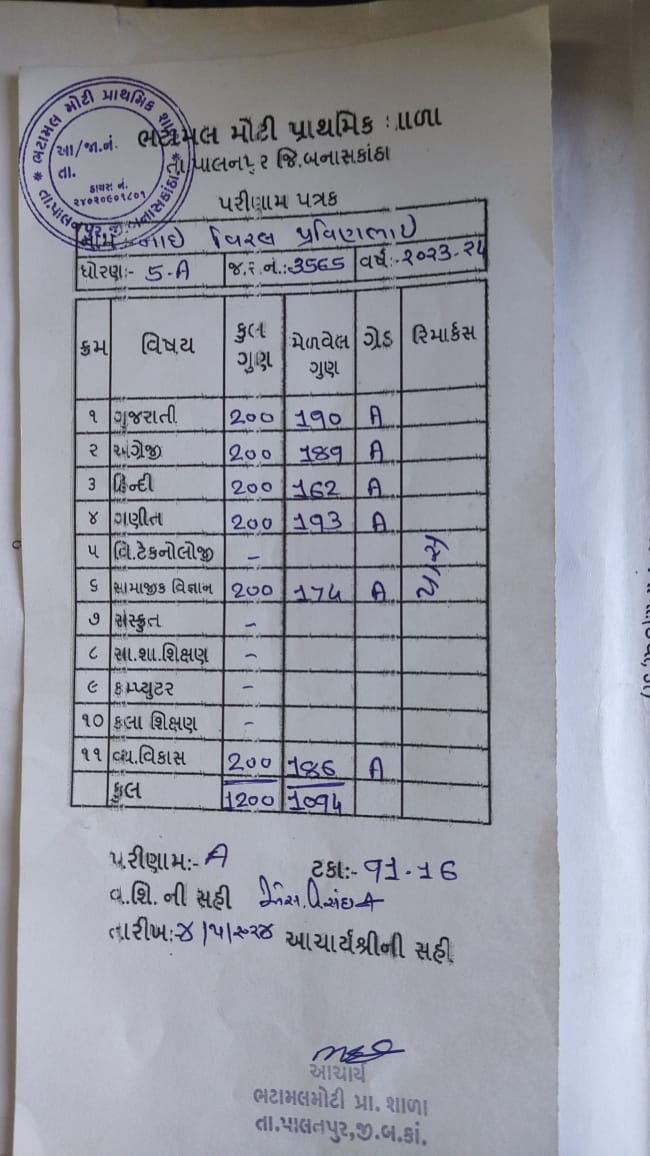 ભટામલ મોટી પ્રાથમિક શાળા
આ/જા.નં.
તા.
ડાયસ નં.
૨૪૦૨૦૯૦૧૮૦૧
તા.પાલનપુર જી.બનાસકાંઠા
ભટામલ મોટી પ્રાથમિક શાળા
તા.પાલનપુર જિ.બનાસકાંઠા
પરીણામ પત્રક
નામ :- નાઈ વિરલ પ્રવિણભાઈ
ધોરણ:- 5-A જ.ર.નં.:- 3565 વર્ષ:- ૨૦૨૩-૨૪
ક્રમ વિષય કુલ ગુણ મેળવેલ ગુણ ગ્રેડ રિમાર્કસ
૧ ગુજરાતી 200 190 A
૨ અંગ્રેજી 200 189 A
૩ હિન્દી 200 162 A
૪ ગણીત 200 193 A
૫ વિ.ટેકનોલોજી -
૬ સામાજીક વિજ્ઞાન 200 174 A
પાસ
૭ સંસ્કૃત -
૮ સા.શા.શિક્ષણ -
૯ કમ્પ્યુટર -
૧૦ કલા શિક્ષણ -
૧૧ વ્ય.વિકાસ 200 186 A
કુલ 1200 1094
પરીણામ:- A ટકા:- 91.16
વ.શિ. ની સહી
તારીખ:- ૪/૫/૨૦૨૪ આચાર્યશ્રીની સહી
આચાર્ય
ભટામલમોટી પ્રા. શાળા
તા.પાલનપુર,જી.બ.કાં.